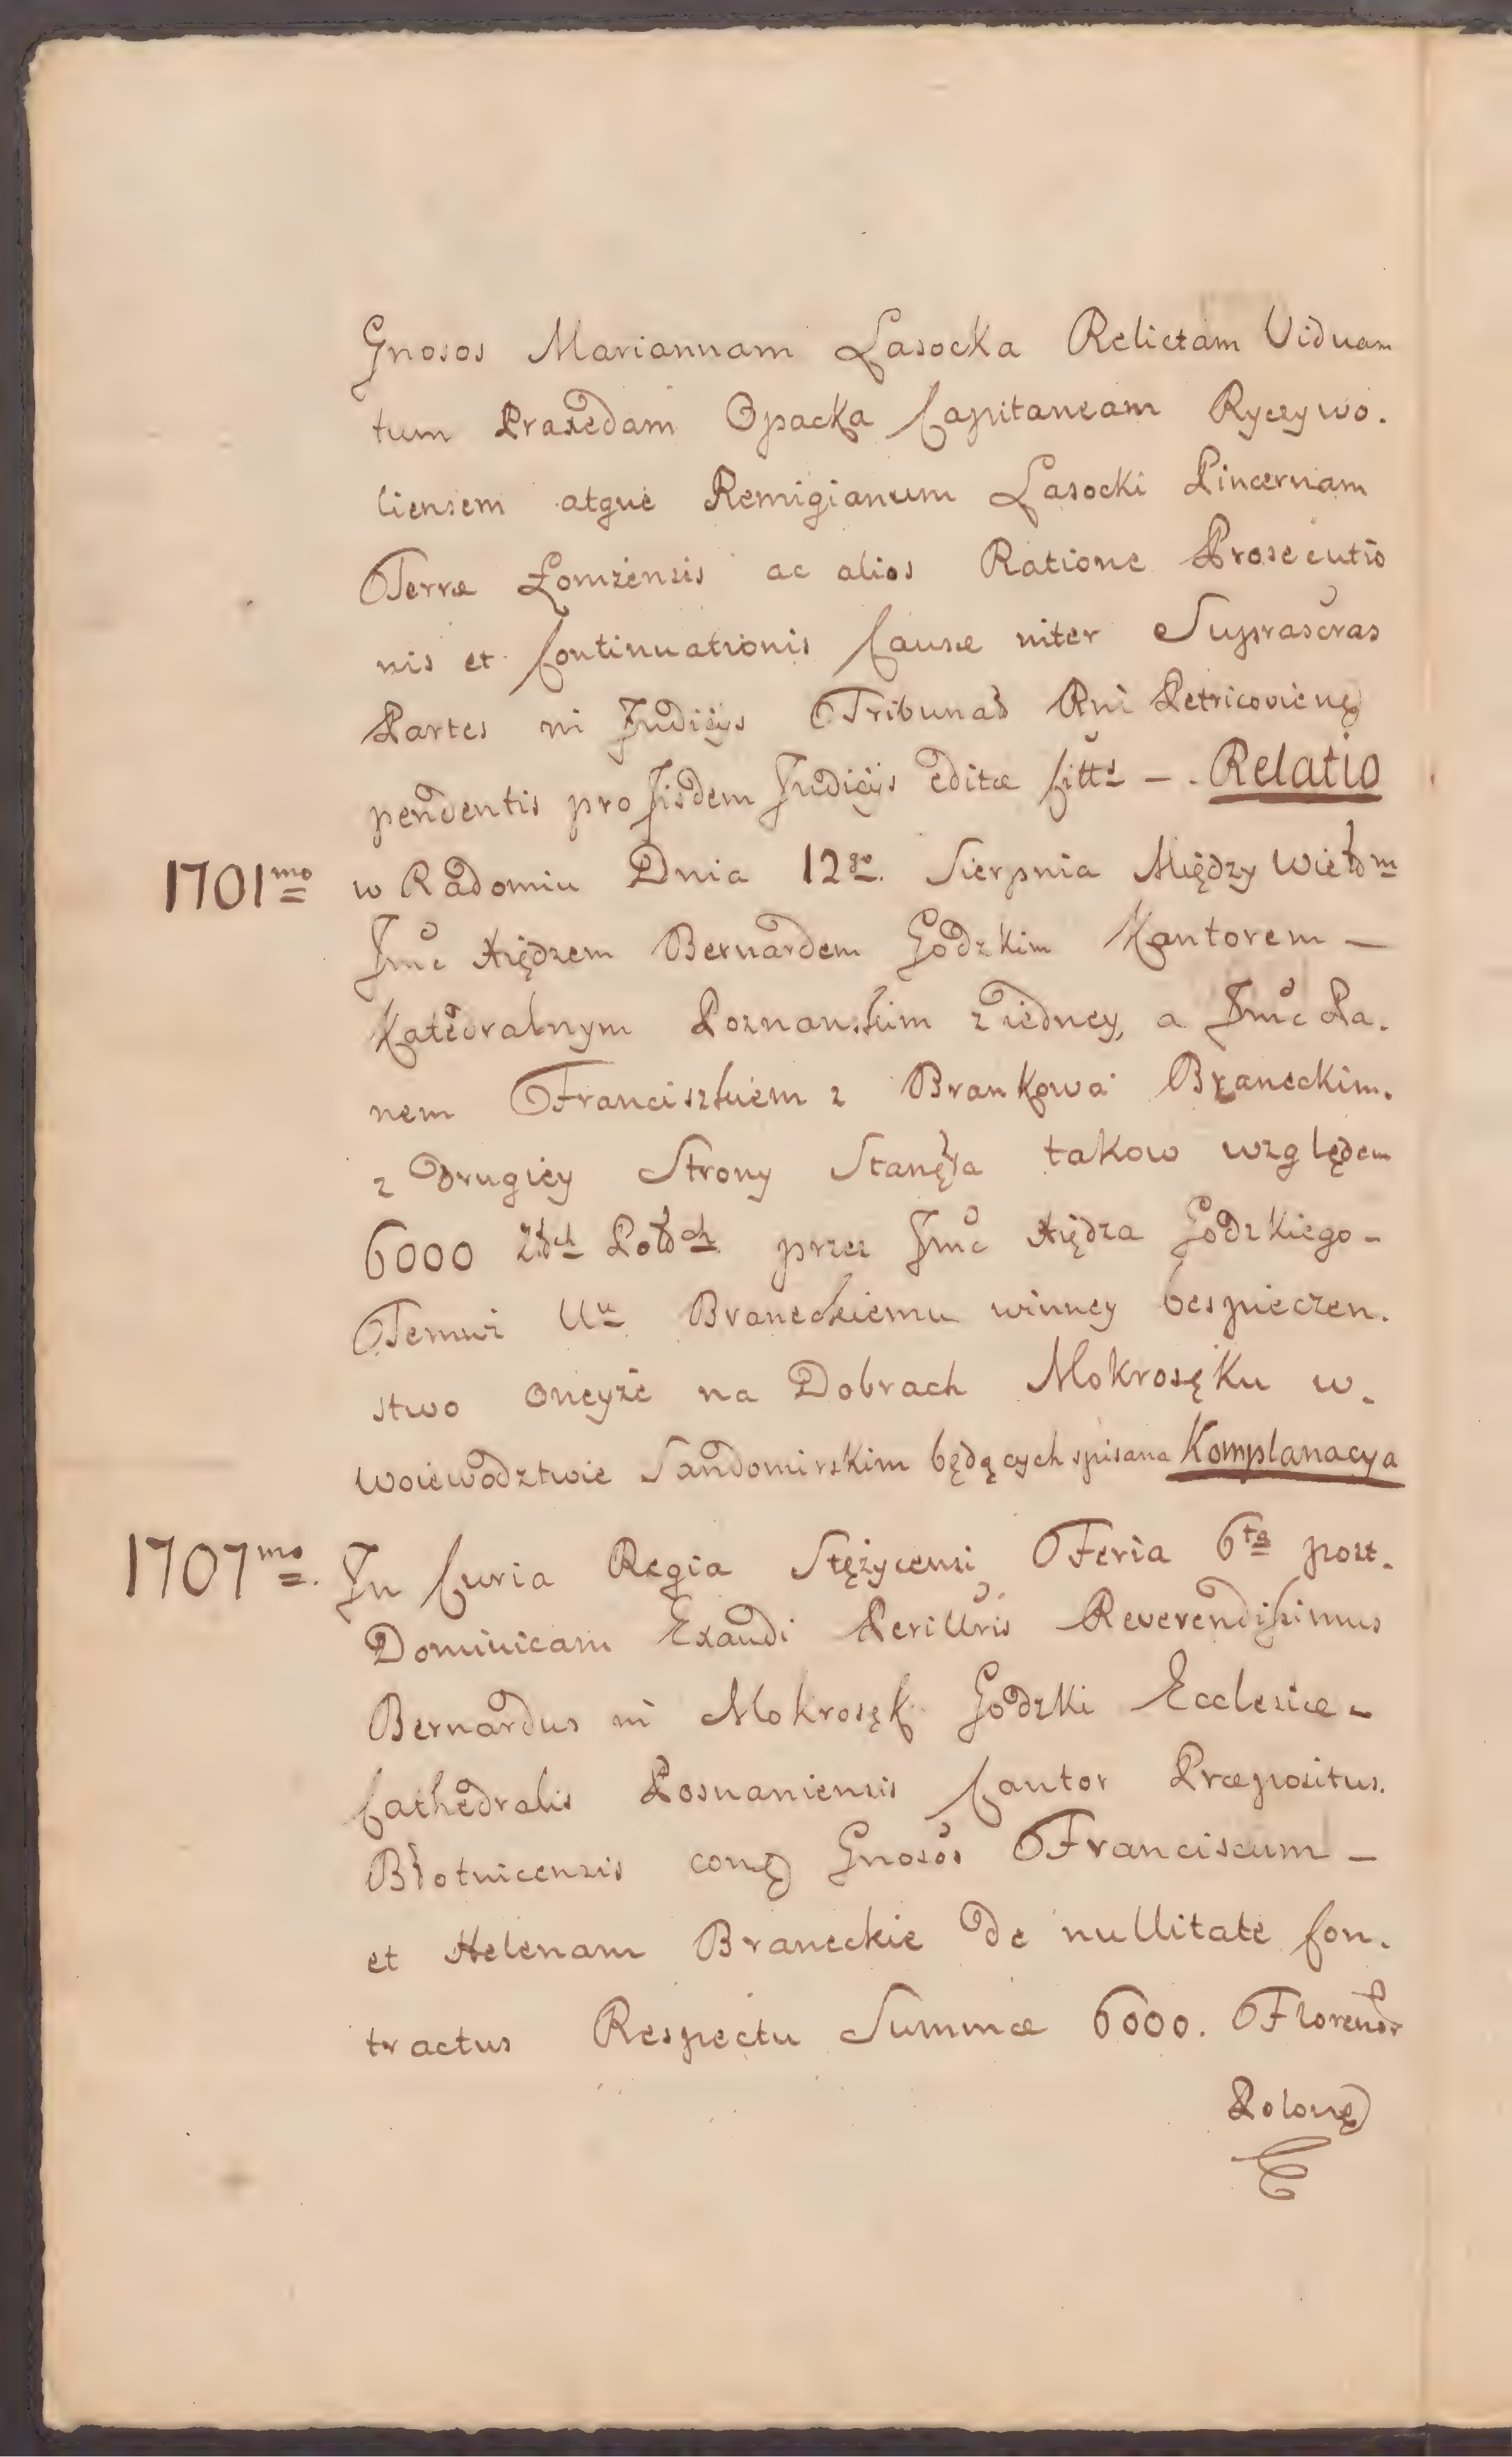 Gnosos Mariannam Lasocka Relictam Viduam
tum Praxedam Opacka Capitaneam Ryczywo.
liensem atque Remigianum Lasocki Pincernam
Terræ Łomżensis ac alios Ratione Prosecutio
nis et Continuationis Causæ niter Suprascras
Partes in Judicijs Tribunał Rni Petricovien
pendentis pro Jisdem Judicijs editæ Citts – . Relatio
1701mo w Radomiu Dnia 12go. Sierpnia Między Wiełbm
Jmc Xiędzem Bernardem Godzkim Kantorem –
Katedralnym Poznanskim z iedney, a Jmc Pa.
nem Franciszkiem z Brankowa Braneckim.
z drugiey Strony Stanęła takow względem
6000 Złtch Polłch przez Jmc Xiędza Godzkiego –
Temuż Uu Braneckiemu winney bespieczen.
stwo oneyże na Dobrach Mokrosęku w.
Woiewodztwie Sandomirskim będących spisana Komplanacya
1707mo. Jn Curia Regia Stężycensi Feria 6ta post.
Dominicam Exaudi Perillris Reverendissimus
Bernardus in Mokrosęk Godzki Ecclesiæ –
Cathedralis Posnaniensis Cantor Præpositus.
Błotnicensis con Gnosos Franciscum –
et Helenam Braneckie de nullitate Con.
tractus Respectu Summæ 6000. Florenor
Polon